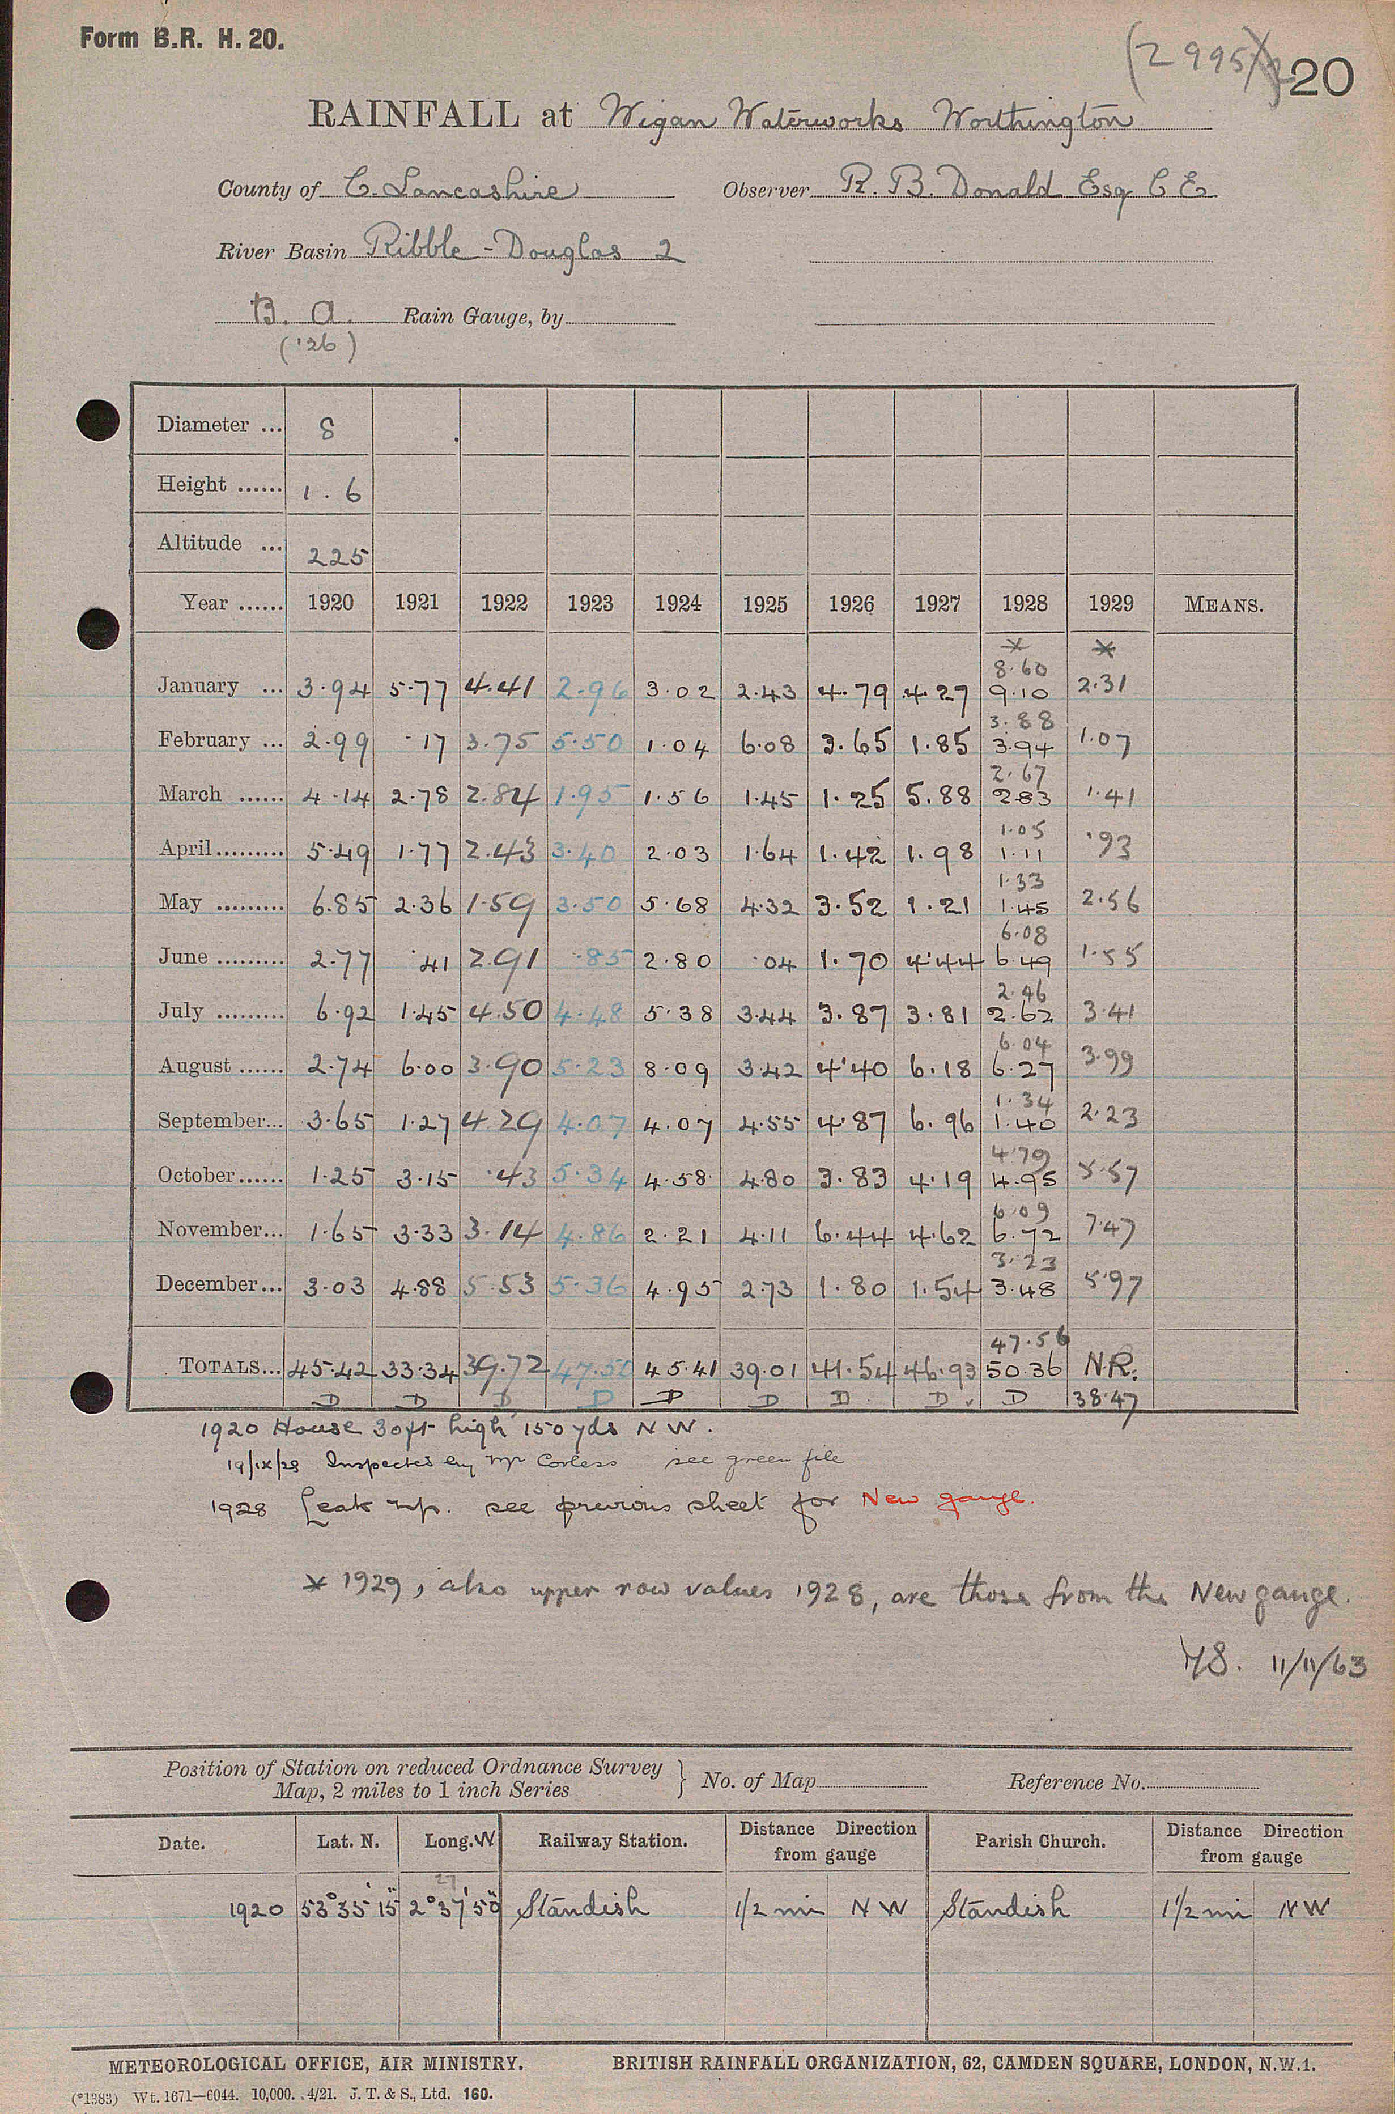 Form B.R. H. 20.
(2995) 20
RAINFALL at Wigan Waterworks Worthington
County of C. Lancashire Observer R. B. Donald Esq C E
River Basin Ribble - Douglas 2
B. A. Rain Gauge, by
('26)
Diameter ... 8
Height ...... 1.6
Altitude ... 225
Year ...... 1920 1921 1922 1923 1924 1925 1926 1927 1928 1929 MEANS.
* *
8.60
January ... 3.94 5.77 4.41 2.96 3.02 2.43 4.79 4.27 9.10 2.31
3.88
February ... 2.99 .17 3.75 5.50 1.04 6.08 3.65 1.85 3.94 1.07
2.67
March ...... 4.14 2.78 2.84 1.95 1.56 1.45 1.25 5.88 2.83 1.41
1.05
April......... 5.49 1.77 2.43 3.40 2.03 1.64 1.42 1.98 1.11 .93
1.33
May ......... 6.85 2.36 1.59 3.50 5.68 4.32 3.52 1.21 1.45 2.56
6.08
June ......... 2.77 .41 2.91 .85 2.80 .04 1.70 4.44 6.49 1.55
2.46
July ......... 6.92 1.45 4.50 4.48 5.38 3.44 3.87 3.81 2.62 3.41
6.04
August ...... 2.74 6.00 3.90 5.23 8.09 3.42 4.40 6.18 6.27 3.99
1.34
September... 3.65 1.27 4.29 4.07 4.07 4.55 4.87 6.96 1.40 2.23
4.79
October...... 1.25 3.15 .43 5.34 4.58 4.80 3.83 4.19 4.95 5.57
6.09
November... 1.65 3.33 3.14 4.86 2.21 4.11 6.44 4.62 6.72 7.47
3.23
December... 3.03 4.88 5.53 5.36 4.95 2.73 1.80 1.54 3.48 5.97
47.56
TOTALS... 45.42 33.34 39.72 47.50 45.41 39.01 41.54 46.93 50.36 N.R.
D D D D D D D D D 38.47
1920 House 30ft high 150 yds N W.
19/IX/28 Inspected by Mr Corless see green file
1928 Leak up. see previous sheet for New gauge.
* 1929, also upper row values 1928, are those from the New gauge.
11/11/63
Position of Station on reduced Ordnance Survey
Map, 2 miles to 1 inch Series } No. of Map Reference No.
Date. Lat. N. Long. W Railway Station. Distance Direction from gauge Parish Church. Distance Direction from gauge
27
1920 53° 35' 15" 2° 37' 50" Standish 1/2 mi N W Standish 1 1/2 mi N W
METEOROLOGICAL OFFICE, AIR MINISTRY. BRITISH RAINFALL ORGANIZATION, 62, CAMDEN SQUARE, LONDON, N.W.1.
(*1383) Wt. 1671—6044. 10,000. 4/21. J. T. & S., Ltd. 160.